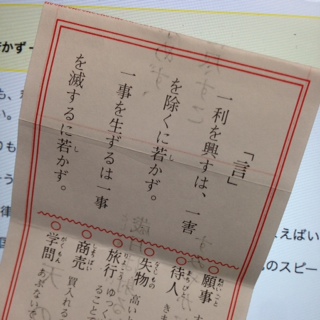 「言」
一利を興すは、一害
を除くに若かず。
一事を生ずるは一事
を滅するに若かず。
願事
待人 き
失物 高い
旅行 ゆっく
ること
商売 買入れる
学問 あぶない
かず
も、
い。
律
えばい
のスピー